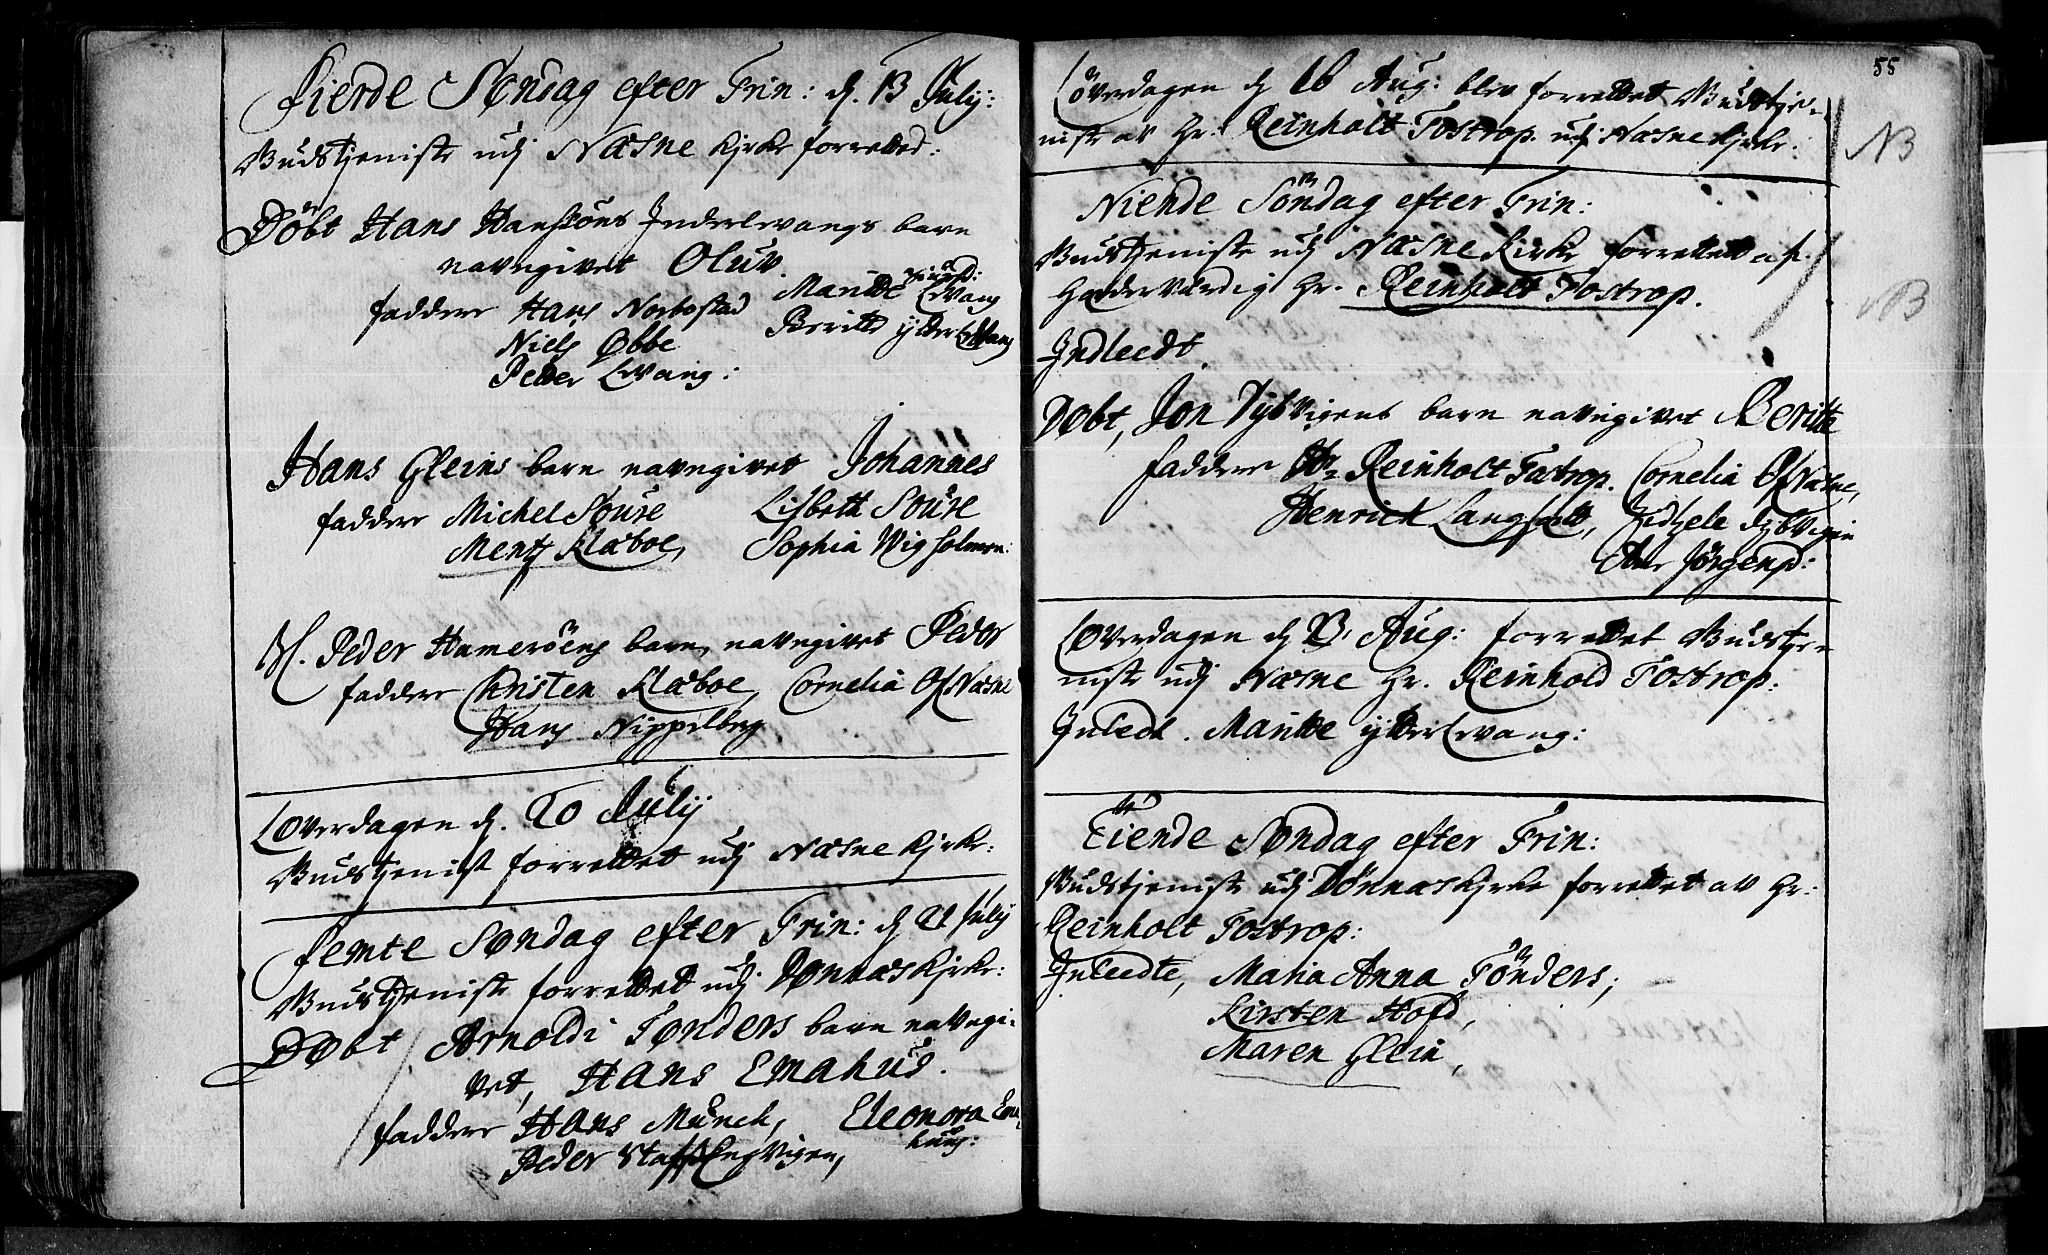 Fierde Søndag efter Trin: d. 13 Julij:
Gudstjeniste udj Næsne Kjrke forretted:
Döbt Hans Hanssöns Inderlevangs barn
navngivet Oluv.
faddere Hans Norbostad Maritte Levang
Niels Øbbe Beritte ytter Levang
Peder Levang:
Hans Gleins barn navngivet Johannes
faddere Michel Soure Lisbeth Soure
Mentz Klæboe, Sophia Wigholmen:
Peder Hamerøens barn, navngivet Peder
faddere Christen Klæboe, Cornelia Of Næsne
Hans Nippelberg
Løverdagen d. 20 Julij
Gudstjenist forrettet udj Næsne Kjrke:
Femte Søndag efter Trin: d. 21 Julij
Gudstjeniste forrettet udj Dønnæs Kjrke:
Døbt Arnoldi Tønders barn navngi-
vet, Hans Emahus.
faddere Hans Münch, Eleonora Ema
Peder Staffs Engvigen, huus:
55
Löverdagen d. 16 Aug: blev forrettet Gudstje-
niste av Hr. Reinholt Tostrop. udj Næsne Kjrke: NB
Niende Söndag efter Trin:
Gudstjeniste udj Næsne Kirke forrettet af
Hæderværdig Hr. Reinholt Tostrop. NB
Indleedt.
Døbt, Jon Dybvigens barn navngivet Beritte
faddere Hr Reinholt Tostrop. Cornelia Of Næsne,
Henrich Langsætt, Zidzele Dybvigen
Ane Jörgensd:
Løverdagen d. 23 Aug: forrettet Gudstje-
niste udj Næsne Hr. Reinhold Tostrop:
Inledt. Maritte ytter Levang:
Tiende Søndag efter Trin:
Gudstjeniste udj Dönnæs Kjrke forrettet av Hr:
Reinholt Tostrop:
Inleedte, Maria Anna Tönders,
Kirsten Hofd,
Maren Glein,